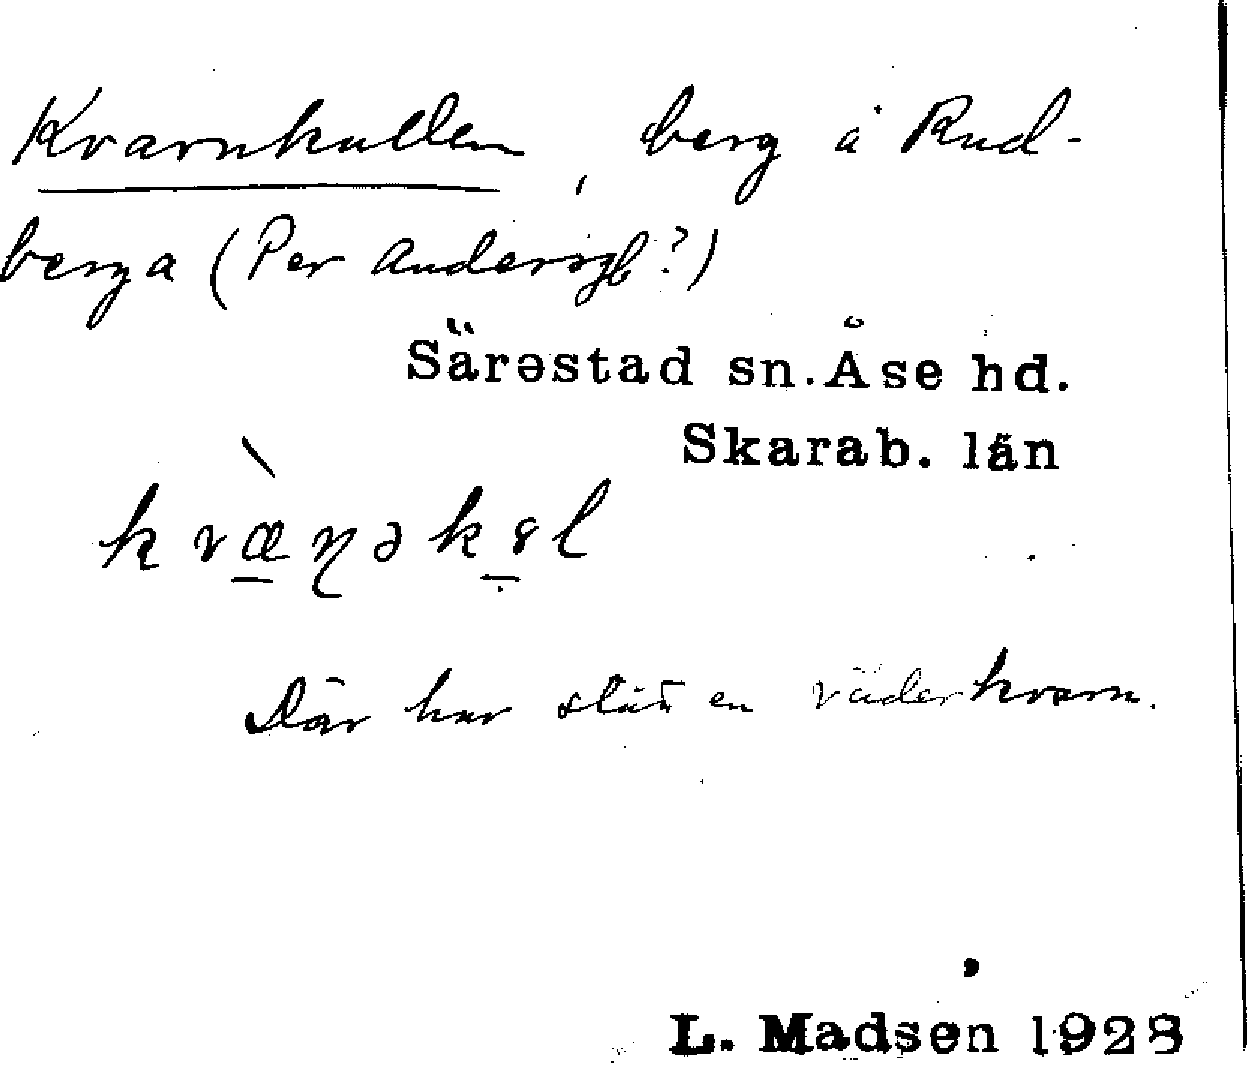 Kvarnkullen, berg å Rud-
berga (Per Andersgb?)
Särestad sn. Åse hd.
Skarab. län
kvæ̀ɳəkɞl
Där har stått en väderkvarn.
L. Madsen 1928